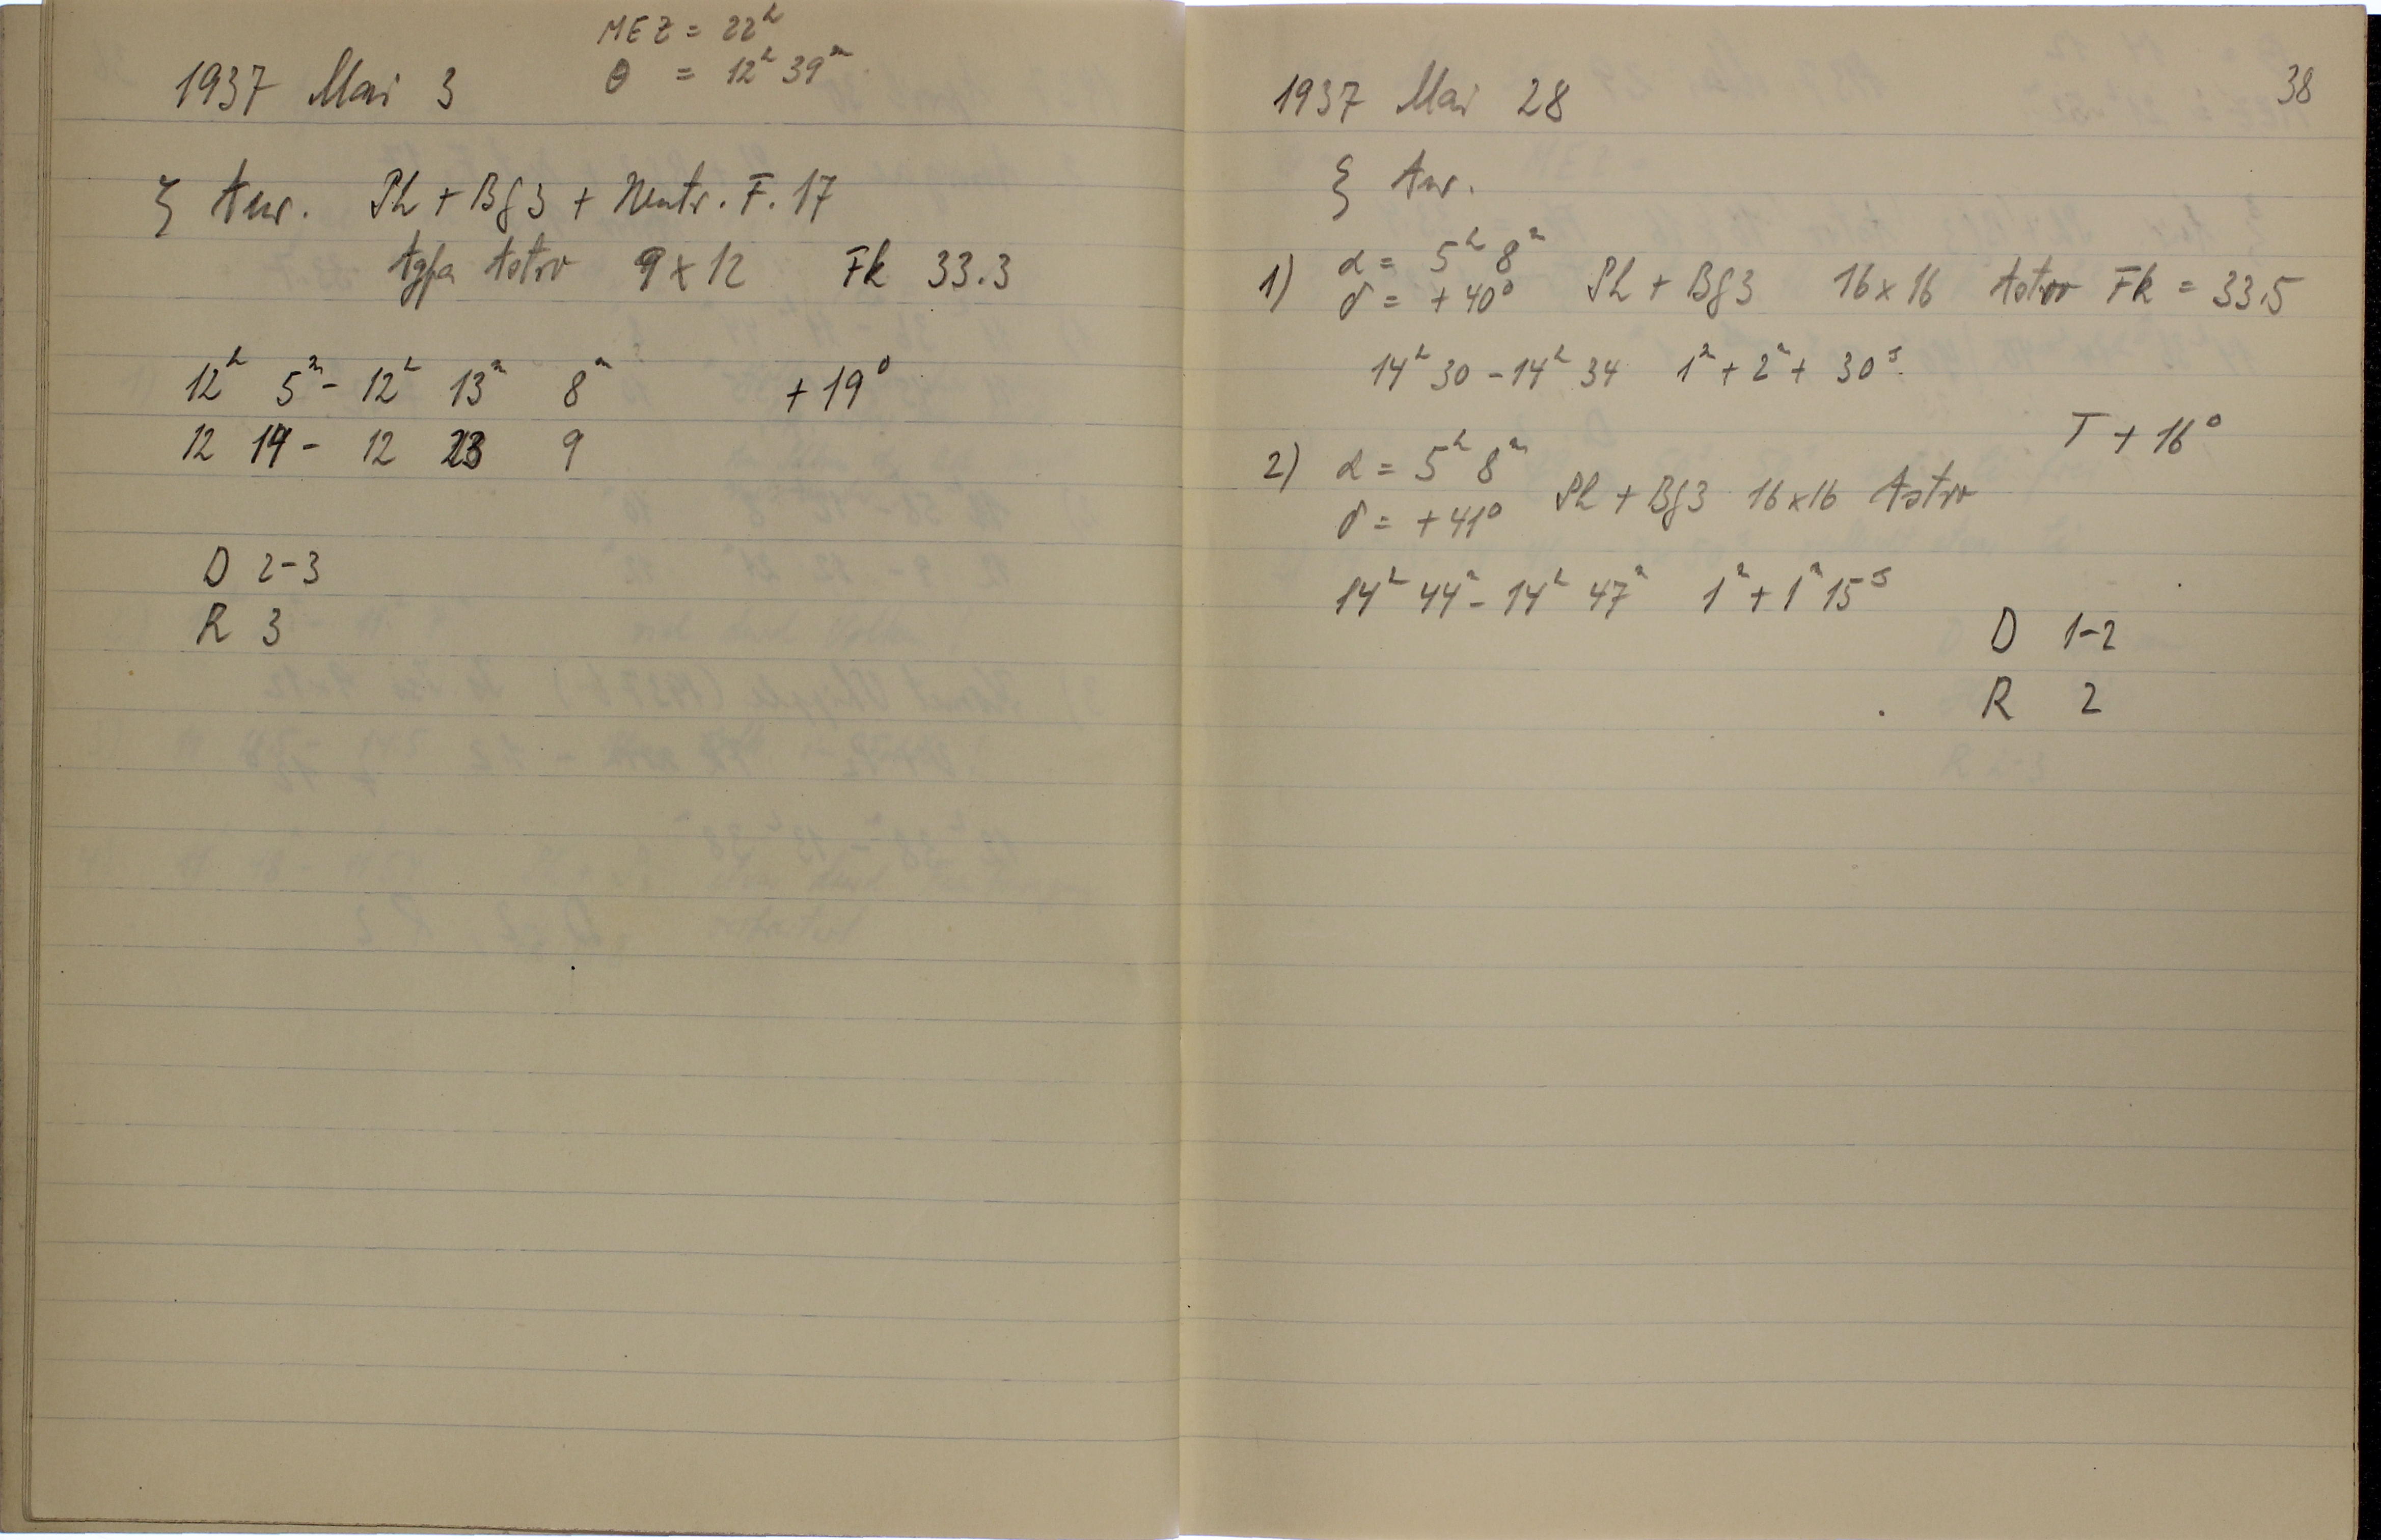 MEZ = 22ʰ
1937 Mai 3 θ = 12ʰ 39ᵐ
ζ Aur. Ph + Bg3 + Neutr. F. 17
Agfa Astro 9 x 12 Fk 33.3
12ʰ 5ᵐ - 12ʰ 13ᵐ 8ᵐ + 19°
12 14 - 12 23 9
D 2-3
R 3
38
1937 Mai 28
ξ Aur.
1) α = 5ʰ 8ᵐ
δ = + 40° Ph + Bg3 16 x 16 Astro Fk = 33.5
14ʰ 30 - 14ʰ 34 1ᵐ + 2ᵐ + 30ˢ.
T + 16°
2) α = 5ʰ 8ᵐ
δ = + 41° Ph + Bg3 16 x 16 Astro
14ʰ 44ᵐ - 14ʰ 47ᵐ 1ᵐ + 1ᵐ 15ˢ
D 1-2
R 2